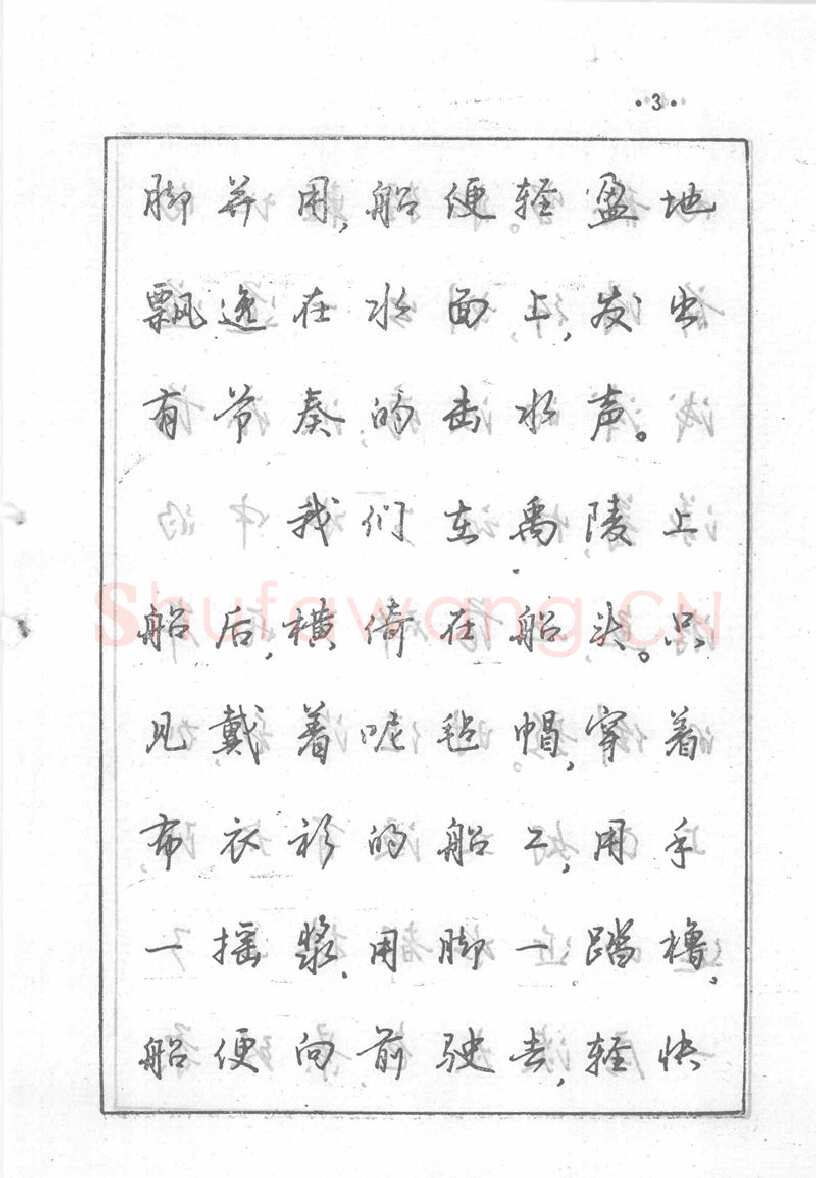 ·3·
脚并用,船便轻盈地
飘逸在水面上,发出
有节奏的击水声。
我们在禹陵上
船后,横倚在船头。只
见戴着呢毡帽,穿着
布衣衫的船工,用手
一摇桨,用脚一踏橹,
船便向前驶去,轻快
Shufawang.CN